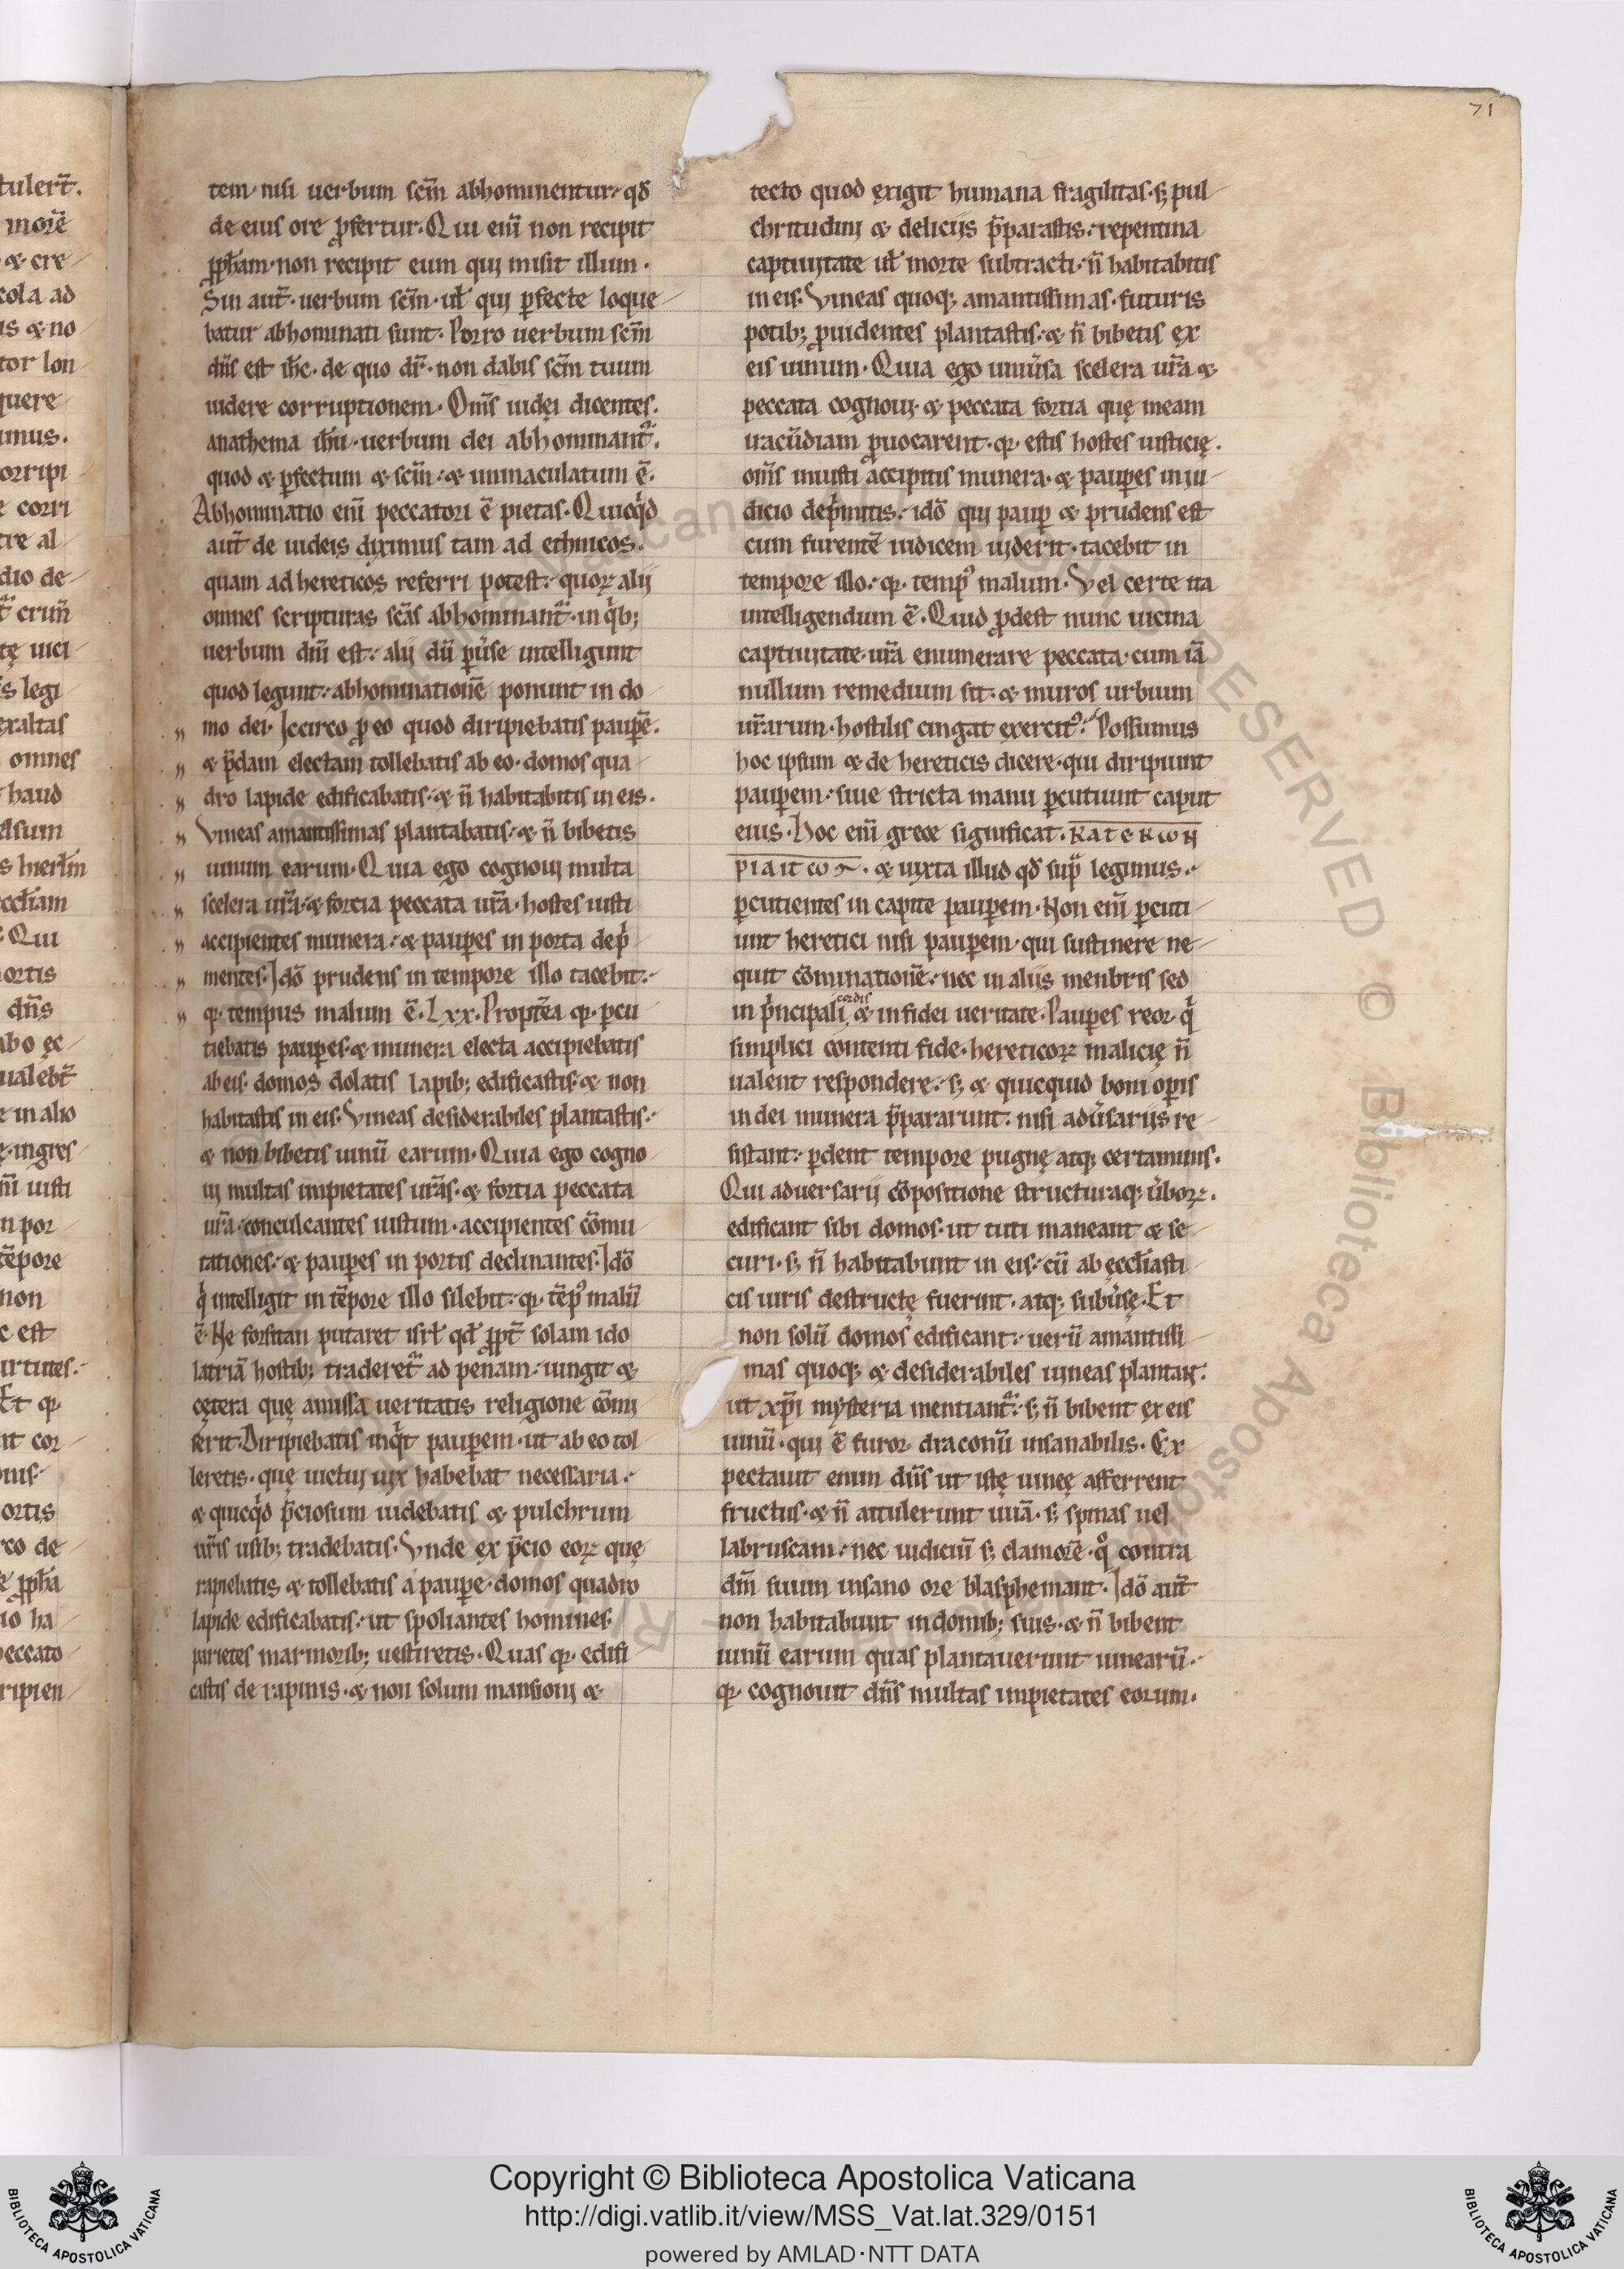 71
tem· nisi uerbum scm̄ abhominentur· qđ
de eius ore ꝓfertur. Qui eni᷎ non recipit
ꝓph̄am· non recipit eum qui misit illum.
Sin aut̄· uerbum scm̄· uł qui ꝑfecte loque
batur abhominati sunt. Porro uerbum scm̄
dn̄s est ih̄c· de quo dr̄· non dabis scm̄ tuum
uidere corruptionem. Om̄s iudęi dicentes.
anathema ih̄u· uerbum dei abhominant̄.
quod & ꝑfectum & scm̄· & immaculatum ē.
Abhominatio eni᷎ peccatori ē pietas. Quicqͥd
aut̄ de iudeis diximus tam ad ethnicos.
quam ad hereticos referri potest· quoꝝ alij
omnes scripturas scās abhominant̄· in qͥb;
uerbum diū est· alij dū ꝑuͥse intelligunt
quod legunt· abhominationē ponunt in do
mo dei. Iccirco ꝓ eo quod diripiebatis pauꝑē.
& p̄dam electam tollebatis ab eo· domos qua
dro lapide edificabatis· & n̄ habitabitis in eis.
Vineas amantissimas plantabatis· & n̄ bibetis
uinum earum. Quia ego cognoui multa
scelera ur̄a· & forcia peccata ur̄a· hostes iusti
accipientes munera· & pauꝑes in porta depͥ
mentes. Idō prudens in tempore illo tacebit·
qͣ· tempus malum ē. Lxx. Propt̄ea qͣ· ꝑcu
tiebatis pauꝑes· & munera electa accipiebatis
ab eis· domos dolatis lapib; edificastis· & non
habitastis in eis. Vineas desiderabiles plantastis·
& non bibetis uinū earum. Quia ego cogno
ui multas impietates ur̄as· & fortia peccata
ur̄a· conculcantes iustum· accipientes cōmu
tationes· & pauꝑes in portis declinantes. Idō
qͥ intelligit in tēpore illo silebit· qͣ· tēpꝰ malū
ē. Ne forsitan putaret isrł qđ ꝓpt̄ solam ido
latriā hostib; traderet̄ ad penam· iungit &
cętera quę amissa ueritatis religione cōmi
serit. Diripiebatis inqͥt pauꝑem· ut ab eo tol
leretis· quę uictui uix habebat necessaria·
& quicqͥd p̄ciosum uidebatis & pulchrum
ur̄is usib; tradebatis. Vnde ex p̄cio eoꝝ quę
rapiebatis & tollebatis á pauꝑe· domos quadro
lapide edificabatis· ut spoliantes homines
parietes marmorib; uestiretis. Quas qͣ· edifi
castis de rapinis· & non solum mansioni &
tecto quod exigit humana fragilitas· s; pul
chritudini & delicijs p̄parastis· repentina
captiuitate uł morte subtracti· n̄ habitabitis
in eis. Vineas quoq; amantissimas· futuris
potib; ꝓuidentes plantastis· & n̄ bibetis ex
eis uinum. Quia ego uniuͥsa scelera ur̄a &
peccata cognoui· & peccata fortia quę meam
iracūdiam ꝓuocarent· qͣ· estis hostes iusticię.
om̄s iniusti accipitis munera· & pauꝑes in iu
dicio depͥmitis· idō qui pauꝑ & prudens est
cum furentē iudicem uiderit· tacebit in
tempore illo· qͣ· tempꝰ malum. Vel certe ita
intelligendum ē. Quid ꝓdest nunc uicina
captiuitate· ur̄a enumerare peccata· cum iā
nullum remedium sit· & muros urbium
ur̄arum· hostilis cingat exercitꝰ? Possumus
hoc ipsum & de hereticis dicere· qui diripiunt
pauꝑem· siue stricta manu ꝑcutiunt caput
eius. Hoc eni᷎ grece significat. ΚΑΤΕΚωΝ
ΡΙΑΙΤωΝ. & iuxta illud qđ supͣ legimus·
ꝑcutientes in capite pauꝑem. Non eni᷎ ꝑcuti
unt heretici nisi pauꝑem· qui sustinere ne
quit cōminationē· nec in alijs menbris sed
in pͥncipali cordis & in fidei ueritate. Pauꝑes reor· qͥ
simplici contenti fide· hereticoꝝ malicię n̄
ualent respondere· s; & quicquid boni oꝑis
in dei munera p̄pararunt· nisi aduͥsarijs re
sistant· ꝑdent tempore pugnę atq; certaminis.
Qui adversarij cōpositione structuraq; uͥboꝝ.
edificant sibi domos· ut tuti maneant & se
curi· s; n̄ habitabunt in eis· cū ab ęccłiasti
cis uiris destructę fuerint· atq; subuͥsę. Et
non solū domos edificant· uerū amantissi
mas quoq; & desiderabiles uineas plantant·
ut xp̄i mysteria mentiant̄· s; n̄ bibent ex eis
uinū· qui ē furor draconū insanabilis. Ex
pectauit enim dn̄s ut istę uineę afferrent
fructus· & n̄ attulerunt uuā· s; spinas uel
labruscam· nec iudiciū s; clamorē· qͦ contra
dm̄ suum insano ore blasphemant. Idō aut̄
non habitabunt in domib; suis· & n̄ bibent
uinū earum quas plantauerunt uinearū·
qͣ· cognouit dn̄s multas impietates eorum.
Copyright © Biblioteca Apostolica Vaticana
http://digi.vatlib.it/view/MSS_Vat.lat.329/0151
powered by AMLAD·NTT DATA
BIBLIOTECA APOSTOLICA VATICANA
BIBLIOTECA APOSTOLICA VATICANA